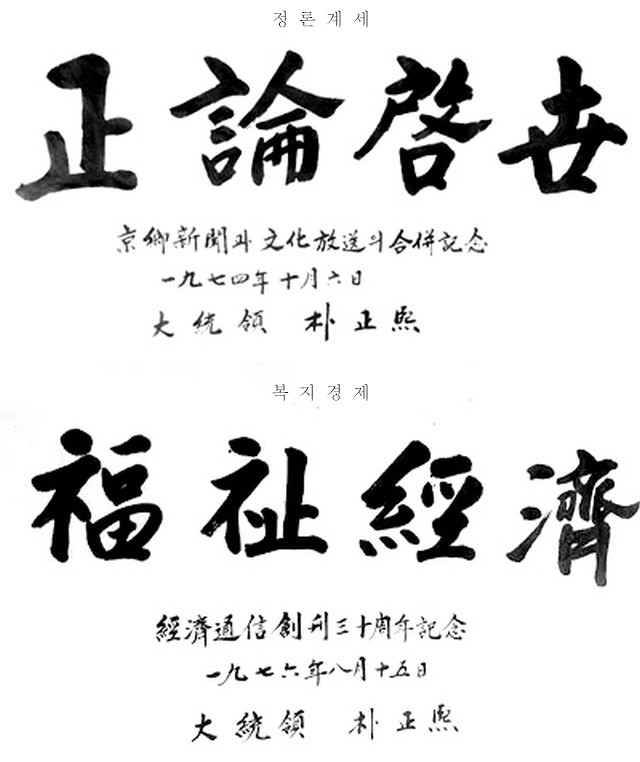 정론계세
正論啓世
京鄕新聞과 文化放送의 合倂記念
一九七四年 十月 六日
大統領 朴正熙
복지경제
福祉經濟
經濟通信 創刊三十周年記念
一九七六年 八月十五日
大統領 朴正熙